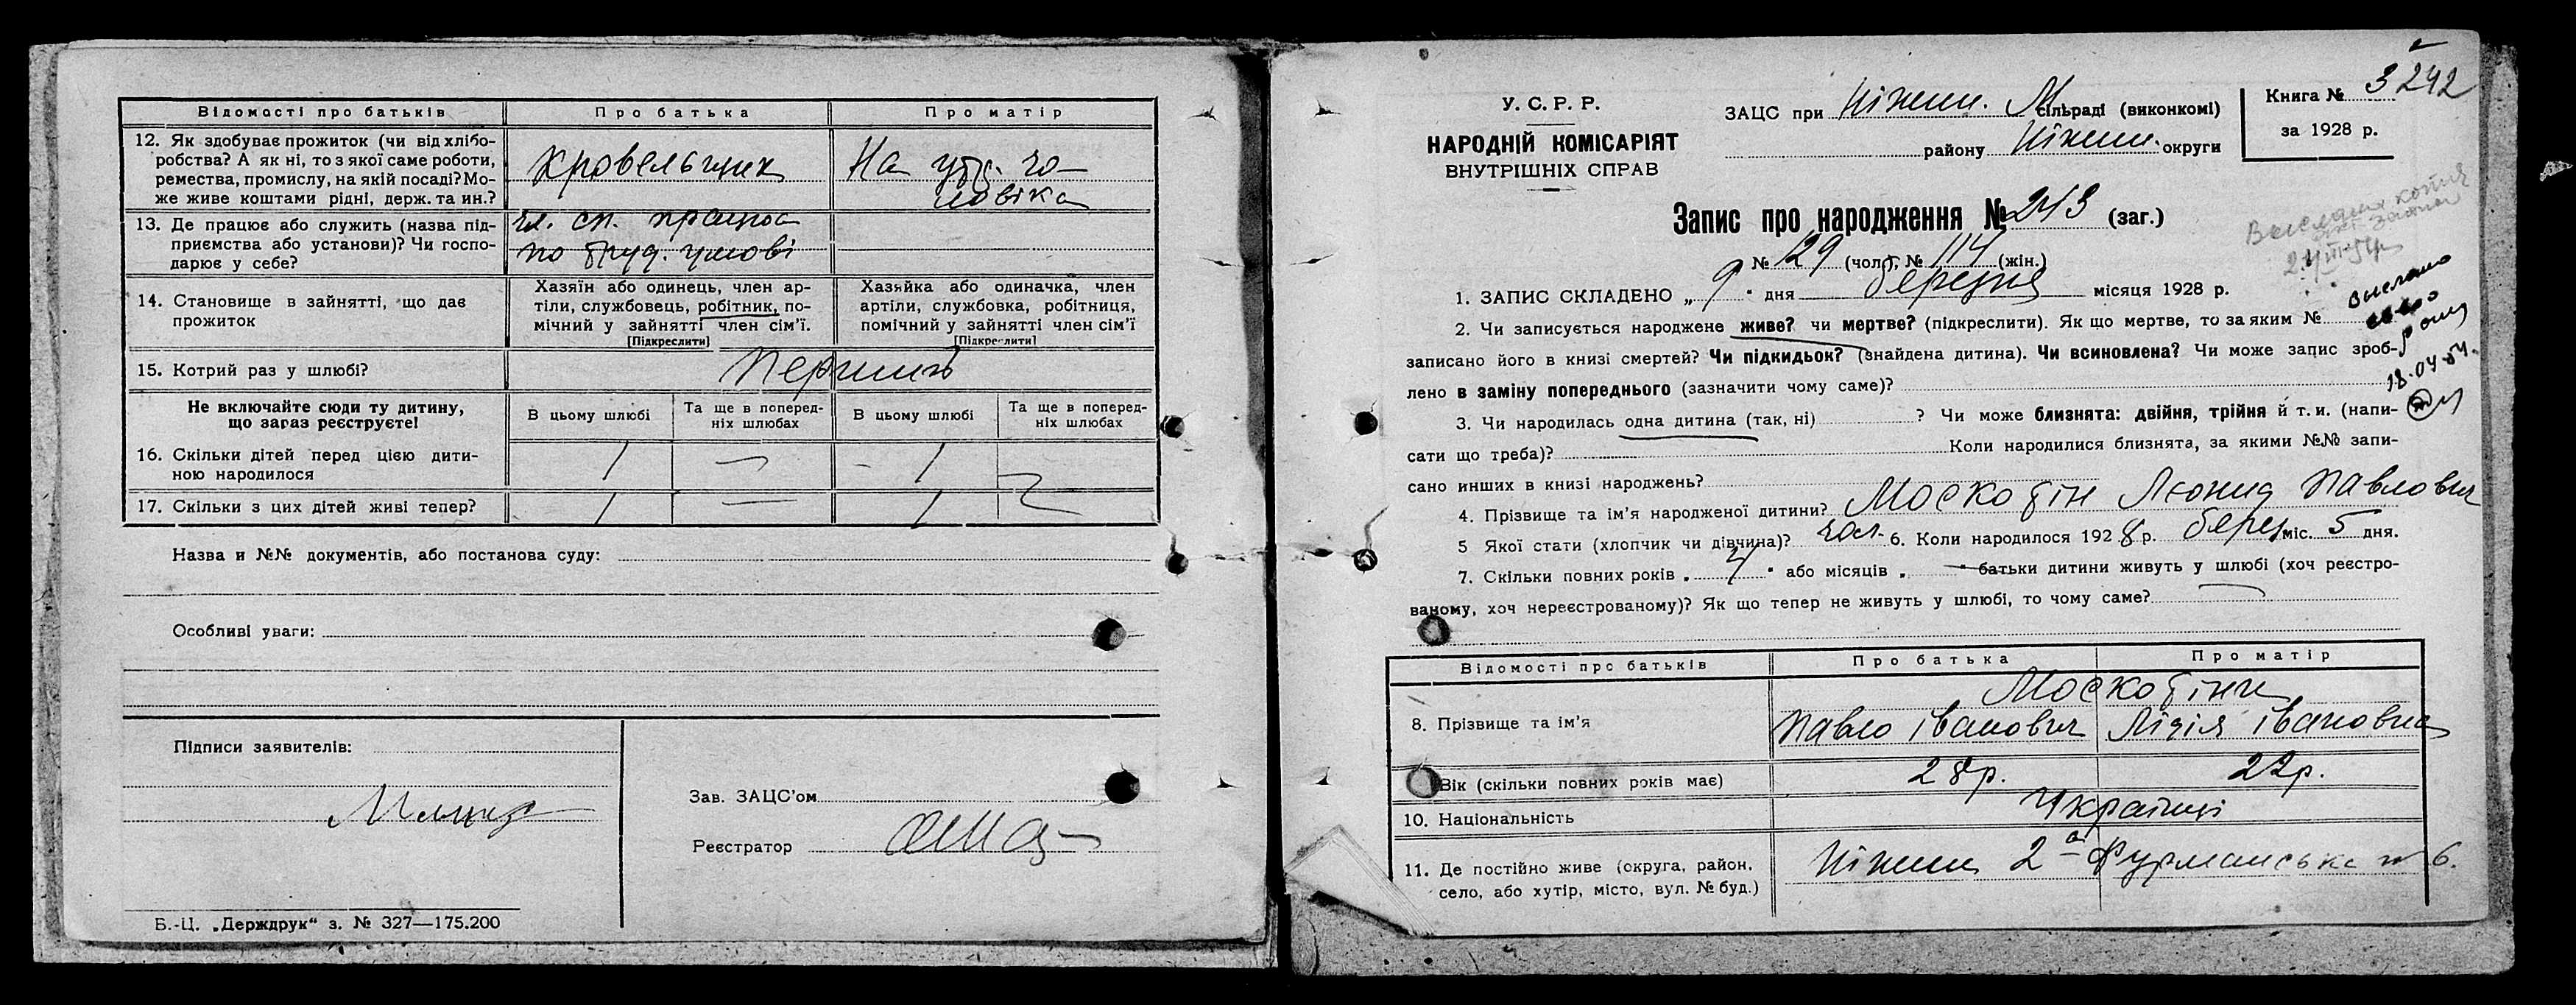 Відомості про батьків Про батька Про матір
12. Як здобуває прожиток (чи від хлібо-
робства? А як ні, то з якої саме роботи,
ремества, промислу, на якій посаді? Мо-
же живе коштами рідні, держ. та ин.?
кровельщик
На утр. чо-
ловіка
13. Де працює або служить (назва під-
приємства або установи)? Чи госпо-
дарює у себе?
чл. сп. працює
по труд. умові
14. Становище в зайнятті, що дає
прожиток
Хазяїн або одинець, член ар-
тілі, службовець, робітник, по-
мічний у зайнятті член сім'ї.
[Підкреслити]
Хазяйка або одиначка, член
артілі, службовка, робітниця,
помічний у зайнятті член сім'ї
[Підкреслити]
15. Котрий раз у шлюбі?
Не включайте сюди ту дитину,
що зараз реєструєте!
В цьому шлюбі
Та ще в поперед-
ніх шлюбах
В цьому шлюбі
Та ще в поперед-
ніх шлюбах
16. Скільки дітей перед цією дити-
ною народилося
1 — 1
17. Скільки з цих дітей живі тепер?
1 — 1
Назва и №№ документів, або постанова суду:
Особливі уваги:
Підписи заявителів:
Зав. ЗАЦС'ом
Реєстратор
Б.-Ц. „Держдрук“ з. № 327—175.200
242
У. С. Р. Р.
НАРОДНІЙ КОМІСАРІЯТ
ВНУТРІШНІХ СПРАВ
ЗАЦС при Ніжин. М сільраді (виконкомі)
району Ніжин. округи
Книга № 3
за 1928 р.
Запис про народження № 243 (заг.)
№ 129 (чол.), № 114 (жін.)
1. ЗАПИС СКЛАДЕНО „ 9 " дня березня місяця 1928 р.
2. Чи записується народжене живе? чи мертве? (підкреслити). Як що мертве, то за яким №
записано його в книзі смертей? Чи підкидьок? (знайдена дитина). Чи всиновлена? Чи може запис зроб-
лено в заміну попереднього (зазначити чому саме)?
18.04.54.
3. Чи народилась одна дитина (так, ні) ? Чи може близнята: двійня, трійня й т. и. (напи-
сати що треба)? Коли народилися близнята, за якими №№ запи-
сано инших в книзі народжень?
4. Прізвище та ім'я народженої дитини? Москотін Леонид Павлович
5 Якої стати (хлопчик чи дівчина)? чол. 6. Коли народилося 1928 р. берез міс. 5 дня.
7. Скільки повних років „ 4 " або місяців „ " батьки дитини живуть у шлюбі (хоч реєстро-
ваному, хоч нереєстрованому)? Як що тепер не живуть у шлюбі, то чому саме?
Відомості про батьків Про батька Про матір
Москотіни
8. Прізвище та ім'я Павло Іванович Лідія Івановна
Вік (скільки повних років має) 28 р. 22 р.
10. Національність Українці
11. Де постійно живе (округа, район,
село, або хутір, місто, вул. № буд.)
Ніжин 2а Фурманська № 6.